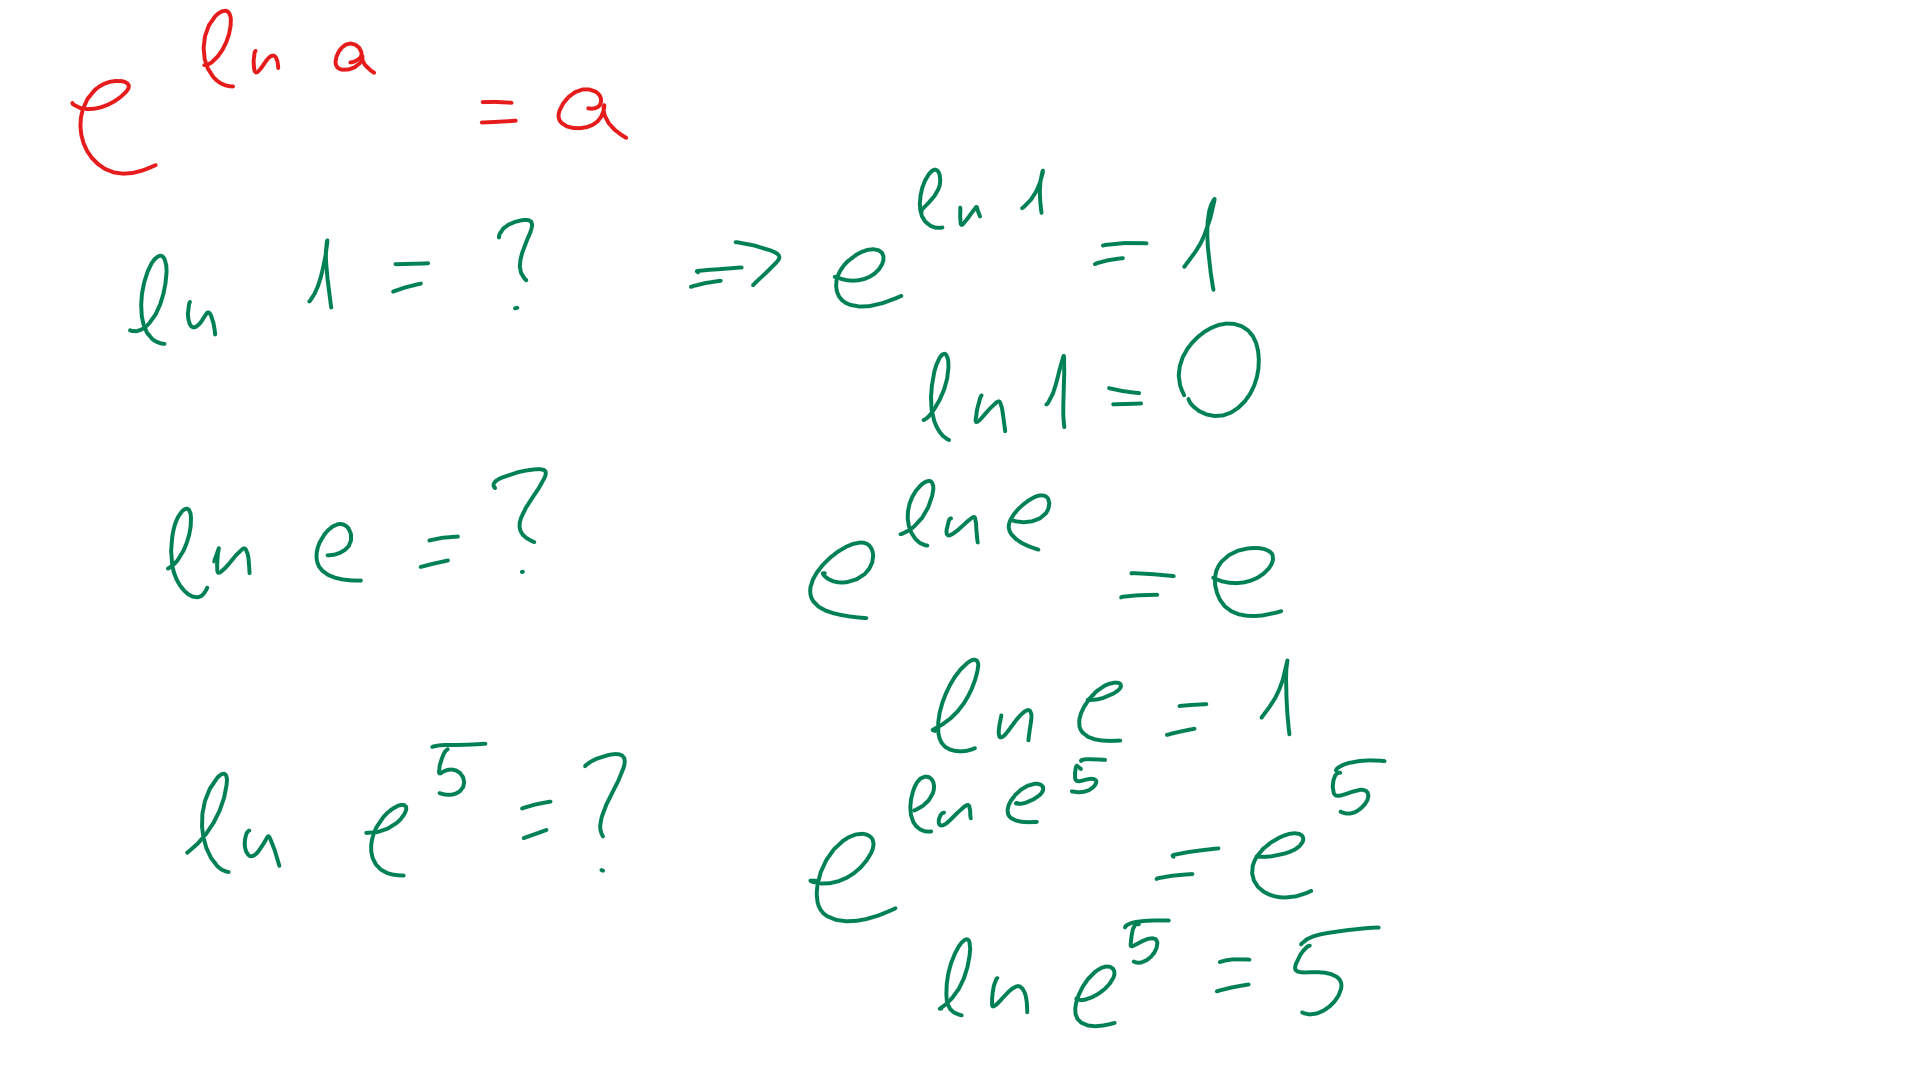 e^{ln a} = a
ln 1 = ? => e^{ln 1} = 1
ln 1 = 0
ln e = ? e^{ln e} = e
ln e = 1
ln e^5 = ? e^{ln e^5} = e^5
ln e^5 = 5